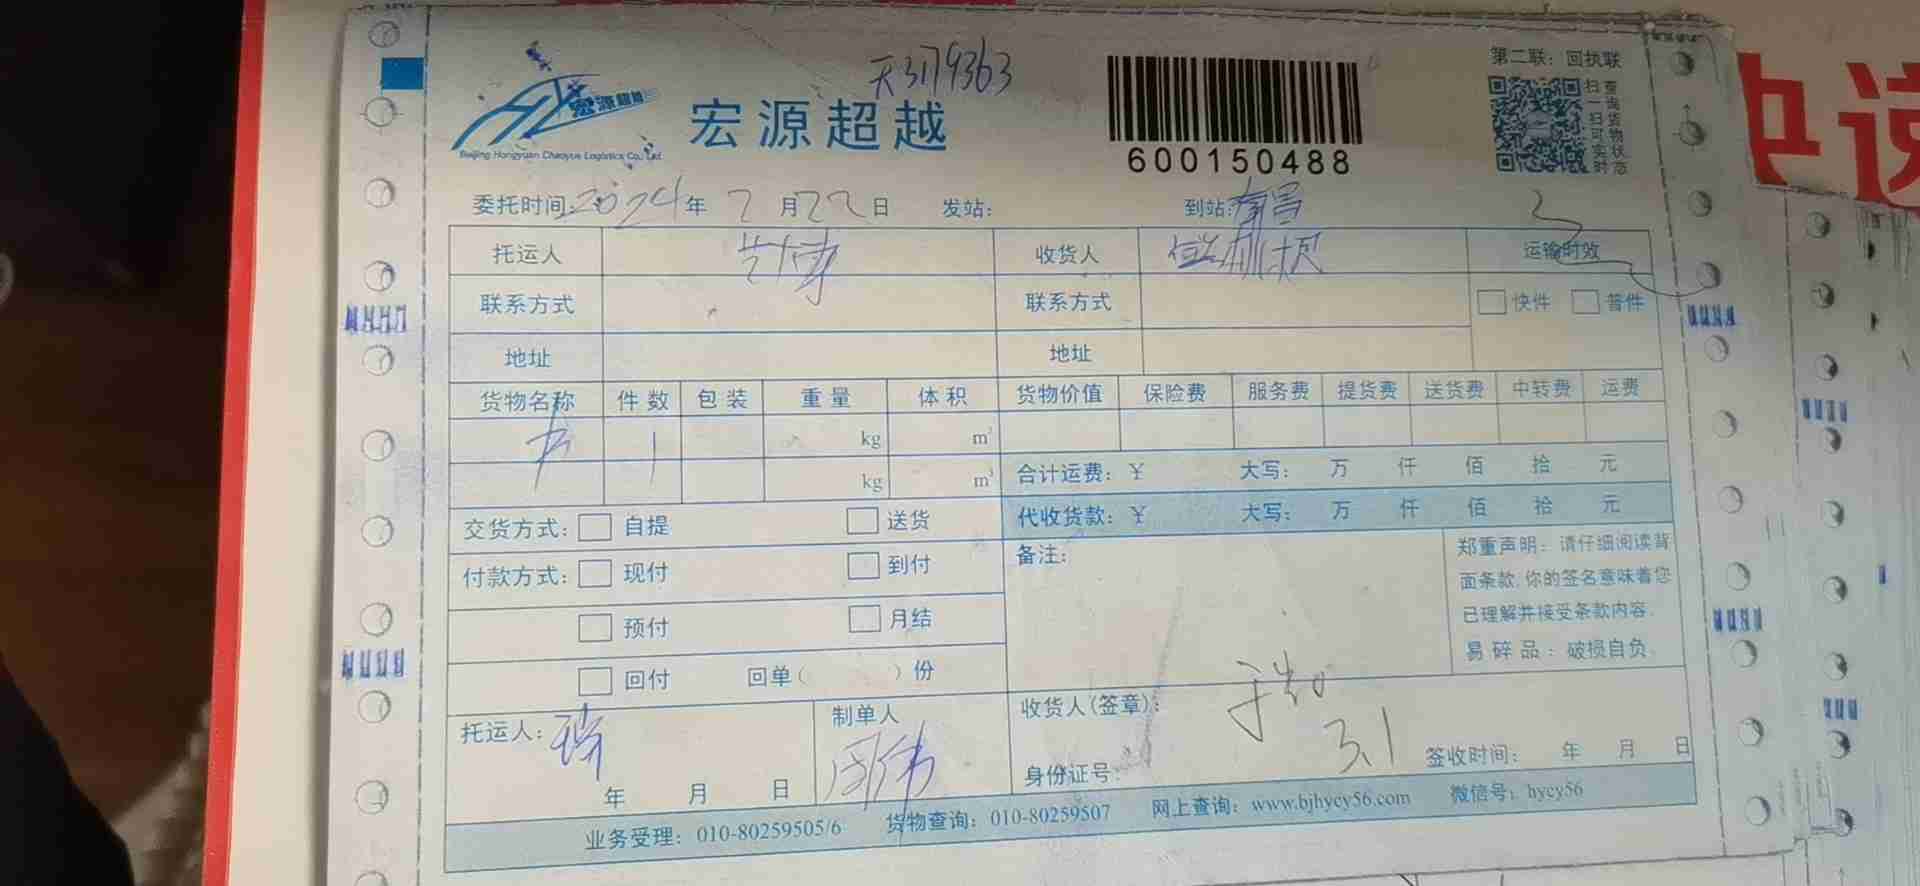 天3179363
第二联：回执联
宏源超越
Beijing Hongyuan Chaoyue Logistics Co., Ltd.
宏源超越
600150488
扫一扫可实时
查询货物状态
委托时间：2024年2月22日 发站： 到站：南昌
托运人 艺博 收货人 运输时效
联系方式 联系方式 快件 普件
地址 地址
货物名称 件数 包装 重量 体积 货物价值 保险费 服务费 提货费 送货费 中转费 运费
书 1 kg m³
kg m³ 合计运费：￥ 大写： 万 仟 佰 拾 元
交货方式： 自提 送货 代收货款：￥ 大写： 万 仟 佰 拾 元
付款方式： 现付 到付 备注：
预付 月结
回付 回单（ ）份
郑重声明：请仔细阅读背
面条款,你的签名意味着您
已理解并接受条款内容.
易碎品：破损自负.
托运人： 制单人 收货人（签章）：
年 月 日 周伟 身份证号： 3.1 签收时间： 年 月 日
业务受理：010-80259505/6 货物查询：010-80259507 网上查询：www.bjhycy56.com 微信号：hycy56
快速